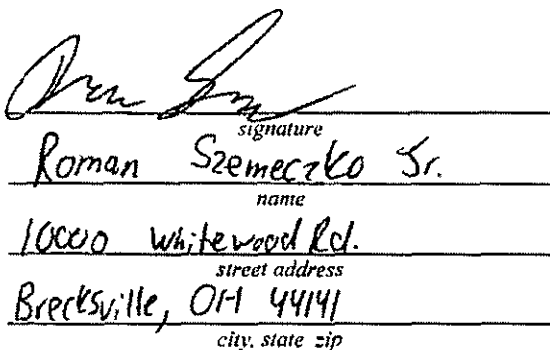 signature
Roman Szemeczko Jr.
name
10000 Whitewood Rd.
street address
Brecksville, OH 44141
city, state zip